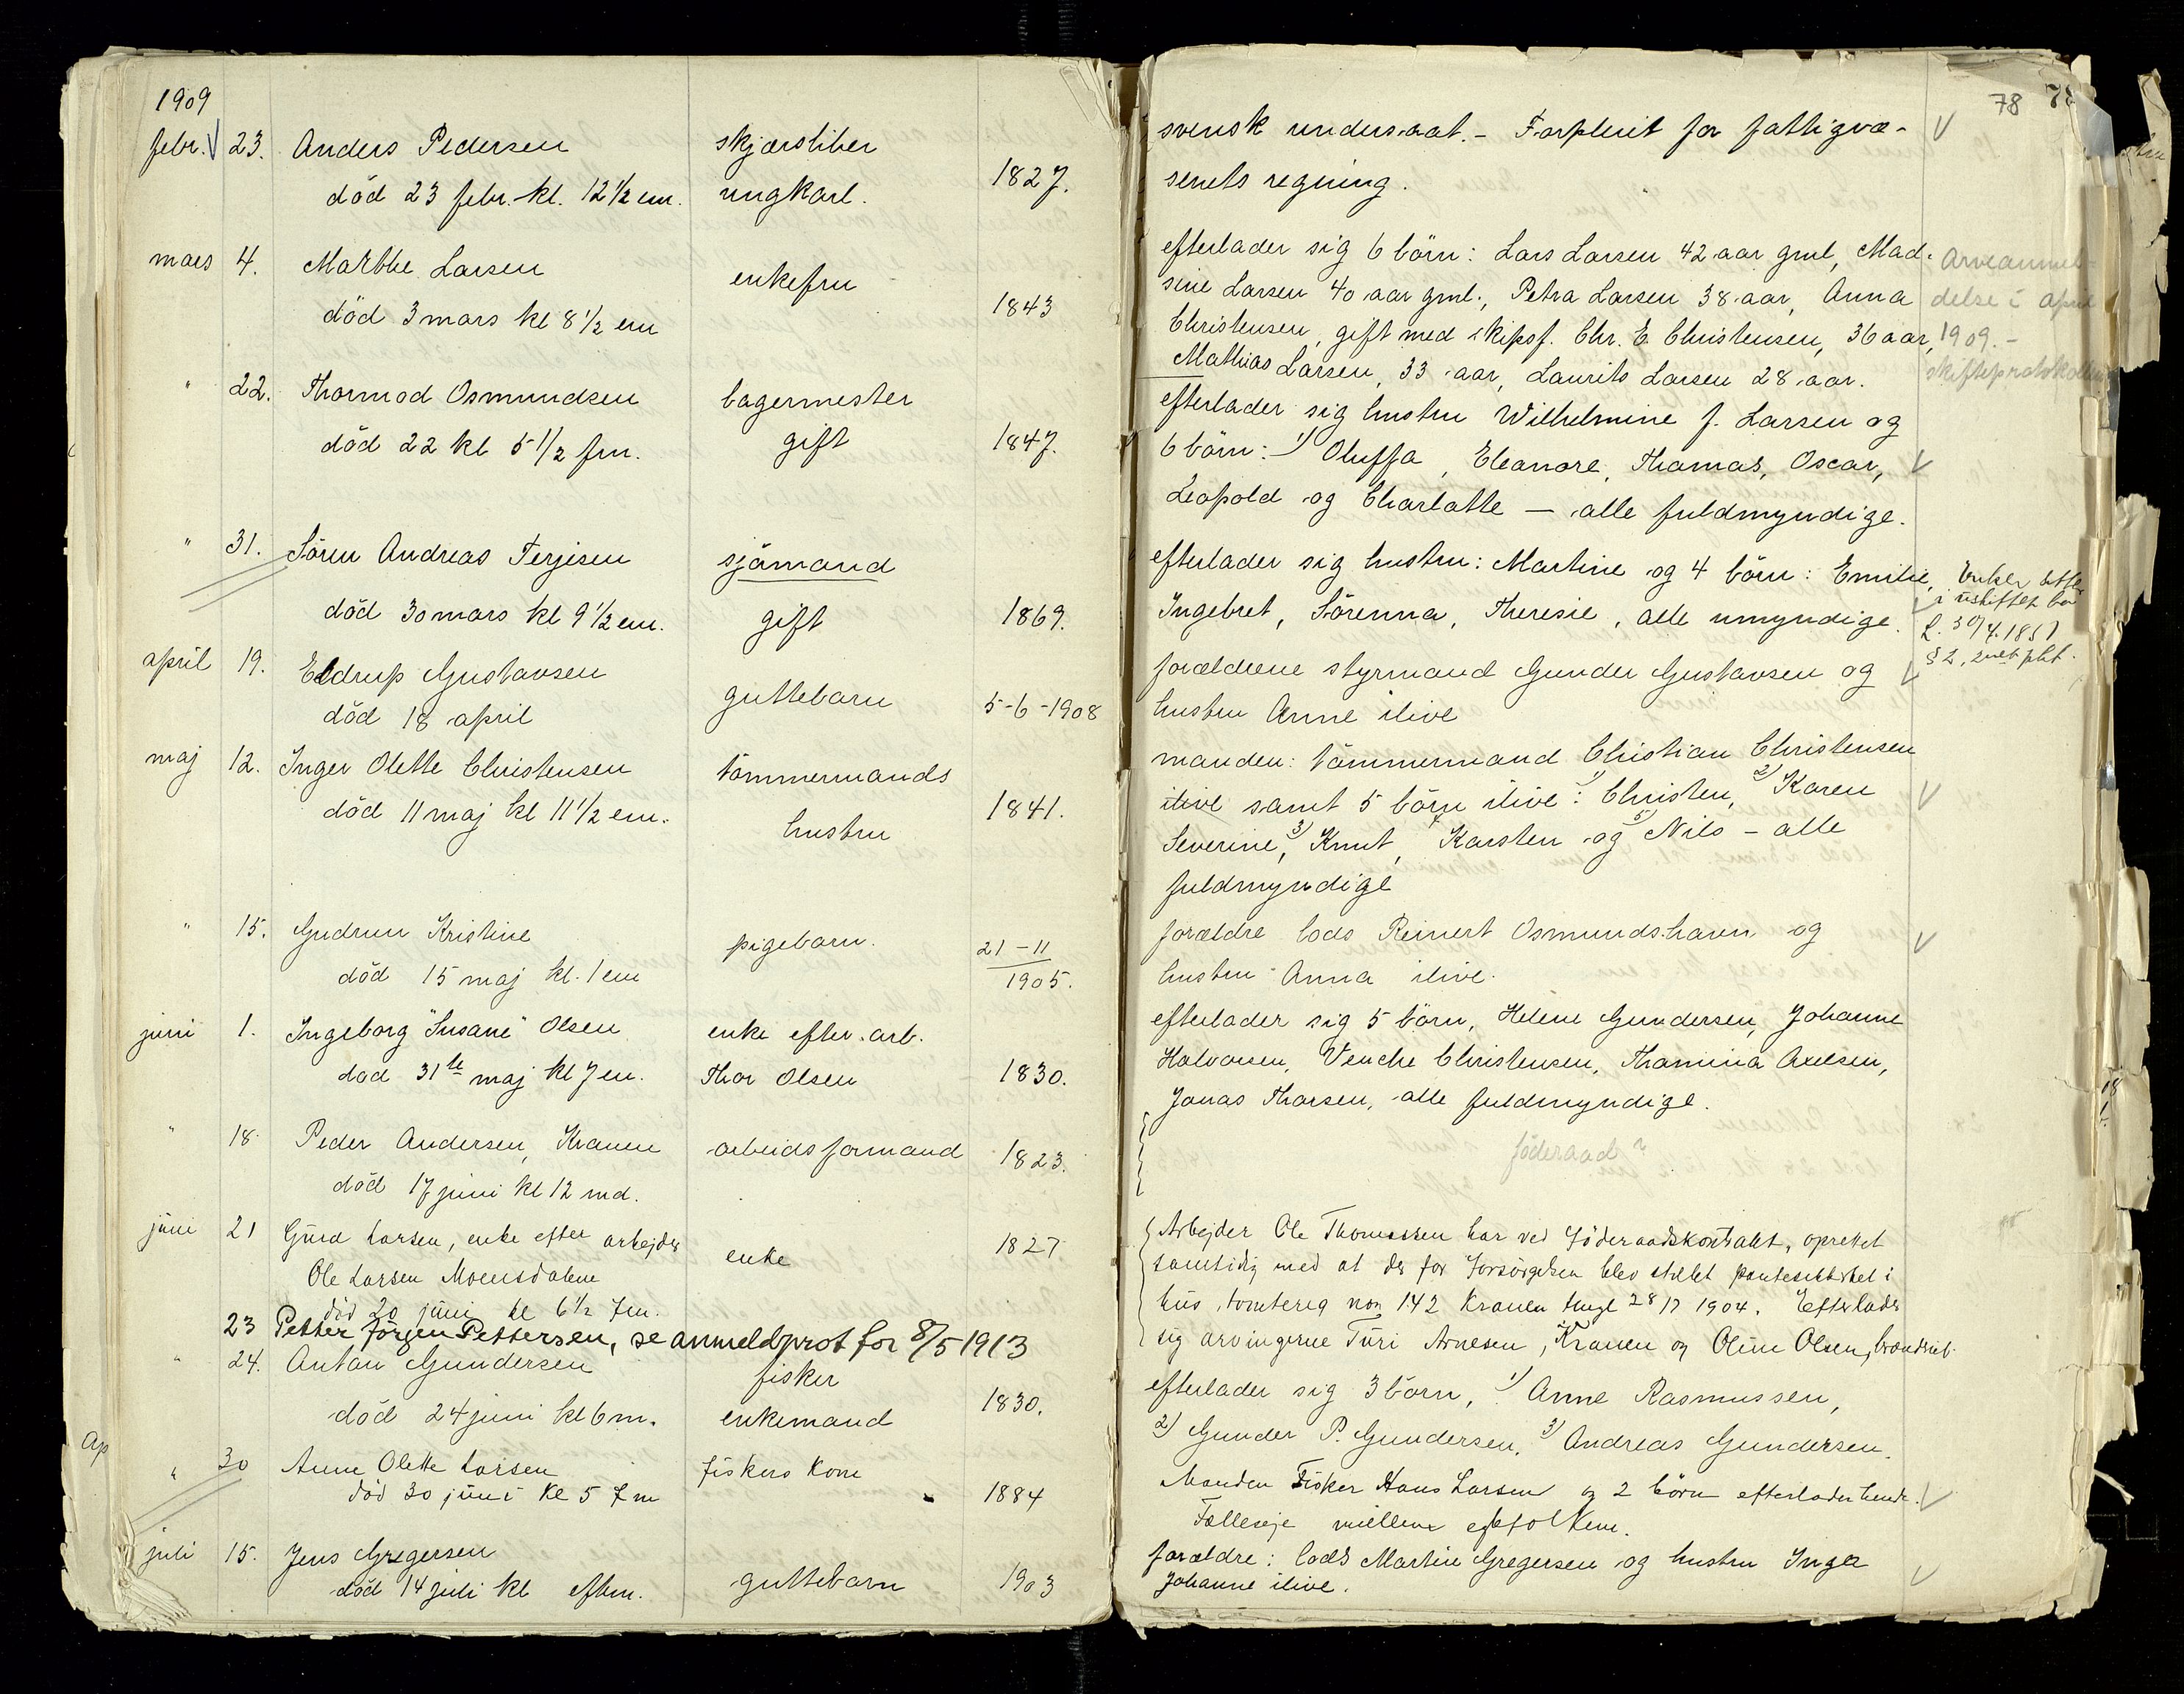 1909
febr. 23. Anders Pedersen skjærsliber
død 23 febr. kl. 12 1/2 em. ungkarl. 1827.
mars 4. Marthe Larsen enkefru
död 3 mars kl 8 1/2 em 1843
" 22. Thormod Osmundsen bagermester
död 22 kl 5 1/2 fm. gift 1847.
" 31. Sören Andreas Terjesen sjömand
död 30 mars kl 9 1/2 em. gift 1869.
april 19. Eldrup Gustavsen guttebarn
död 18 april 5-6-1908
maj 12. Inger Olette Christensen tömmermands
död 11 maj kl 11 1/2 em. hustru 1841.
" 15. Gudrun Kristine pigebarn. 21-11
död 15 maj kl. 1 em 1905.
juni 1. Ingeborg "Susane" Olsen enke efter arb.
död 31te maj kl 7 em. Thor Olsen 1830.
" 18. Peder Andersen, Kranen arbeidsformand 1823.
död 17 juni kl 12 md.
juni 21 Gura Larsen, enke efter arbejder enke 1827
Ole Larsen Moensdalene
död 20 juni kl 6 1/2 fm.
23 Petter Jörgen Pettersen, se anmeldprot for 8/5 1913
" 24. Anton Gundersen fisker
död 24 juni kl 6 m. enkemand 1830.
Ap
" 30 Anne Olette Larsen fiskers kone
död 30 juni kl 5 fm 1884
juli 15. Jens Gregersen
död 14 juli kl eftm. guttebarn 1903
78
svensk undersaat. - Forpleiet for fattigvæ-
senets regning.
efterlader sig 6 börn: Lars Larsen 42 aar gml, Mad-
sine Larsen 40 aar gml., Petra Larsen 38 aar, Anna
Christensen, gift med skipsf. Chr. E. Christensen, 36 aar,
Mathias Larsen, 33 aar, Laurits Larsen 28 aar.
Arveanmel-
delse i april
1909. -
skifteprotokollen
efterlader sig hustru Wilhelmine f. Larsen og
6 börn: 1) Oluffa, Eleanore, Thomas, Oscar,
Leopold og Charlotte — alle fuldmyndige.
efterlader sig hustru: Martine og 4 börn: Emilie,
Ingebret, Sörenna, Theresie, alle umyndige.
i uskiftet bo
L. 30/4. 1851
§ 2,
forældrene styrmand Gunder Gustavsen og
hustru Anne ilive
manden: tömmermand Christian Christensen
ilive samt 5 börn ilive: 1) Christen, 2) Karen
Severine, 3) Knut, Karsten og 5) Nils - alle
fuldmyndige
forældre lods Reinert Osmundshavn og
hustru Anna ilive.
efterlader sig 5 börn, Helene Gundersen, Johanne
Halvorsen, Venche Christensen, Thomina Axelsen,
Jonas Thorsen, alle fuldmyndige.
föderaad?
Arbejder Ole Thomassen har ved föderaadskontrakt, oprettet
samtidig med at der for forsörgelsen blev stillet pantesikkerhet i
hus, 142 Kranen 28/7 1904. Efterlader
sig arvingerne Turi Arnesen, Kranen og Oline Olsen,
efterlader sig 3 börn, 1) Anne Rasmussen,
2) Gunder P. Gundersen, 3) Andreas Gundersen.
Manden Fisker Hans Larsen og 2 börn efterlader hende.
Fælleseje mellem egtefolkene.
forældre: lods Martin Gregersen og hustru Inga
Johanne ilive.